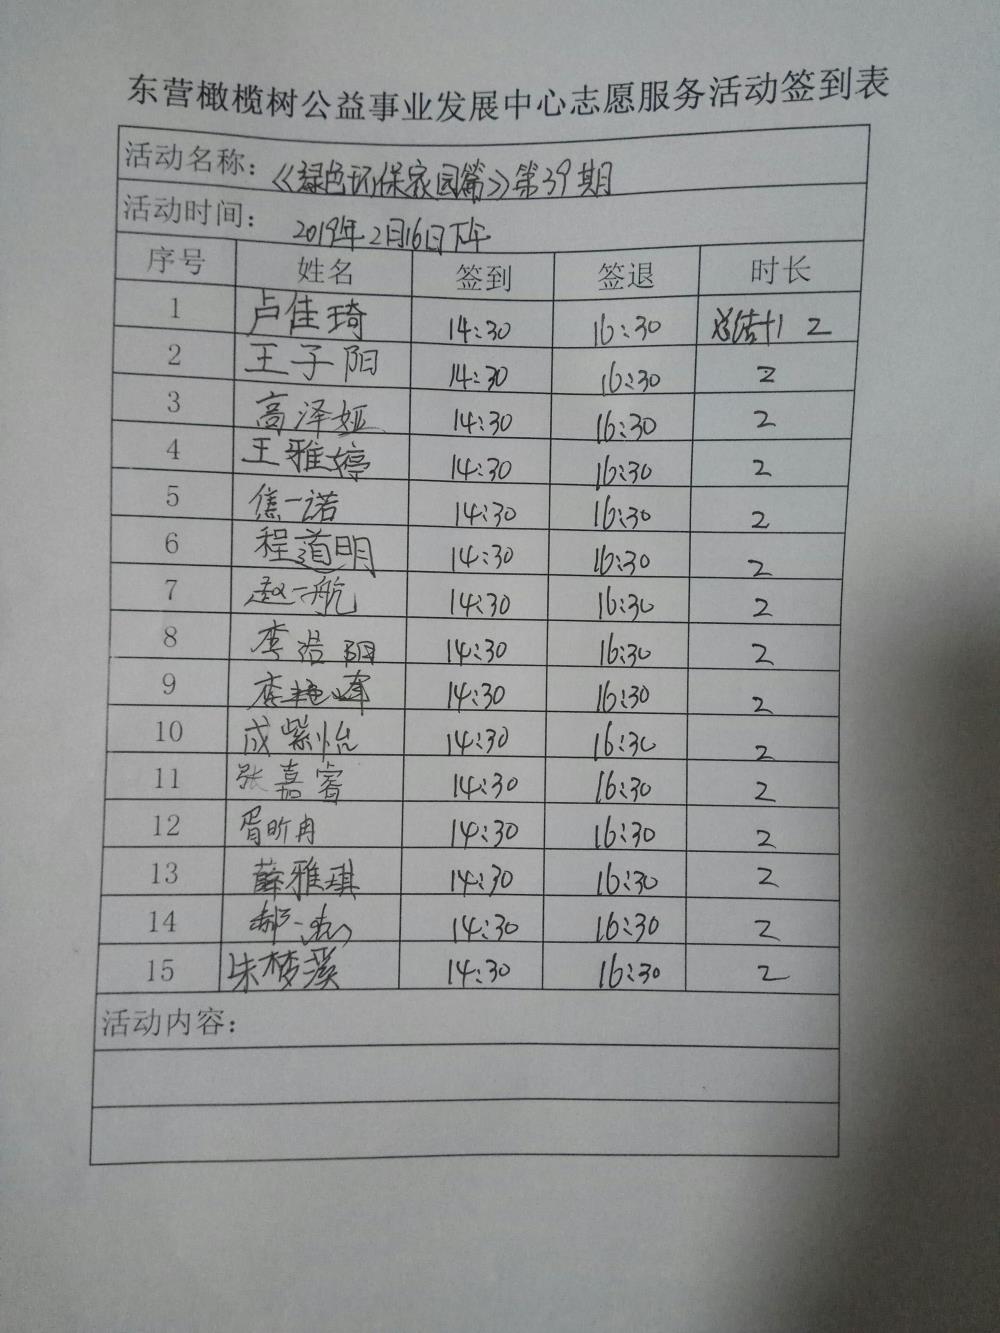 东营橄榄树公益事业发展中心志愿服务活动签到表
活动名称：《绿色环保家园篇》第39期
活动时间： 2019年2月16日下午
序号 姓名 签到 签退 时长
1 卢佳琦 14:30 16:30 总结+1 2
2 王子阳 14:30 16:30 2
3 高泽娅 14:30 16:30 2
4 王雅婷 14:30 16:30 2
5 焦一诺 14:30 16:30 2
6 程道明 14:30 16:30 2
7 赵一航 14:30 16:30 2
8 李浩阳 14:30 16:30 2
9 李艳峰 14:30 16:30 2
10 成紫怡 14:30 16:30 2
11 张嘉睿 14:30 16:30 2
12 胥昕冉 14:30 16:30 2
13 薛雅琪 14:30 16:30 2
14 郝 14:30 16:30 2
15 朱梦溪 14:30 16:30 2
活动内容：